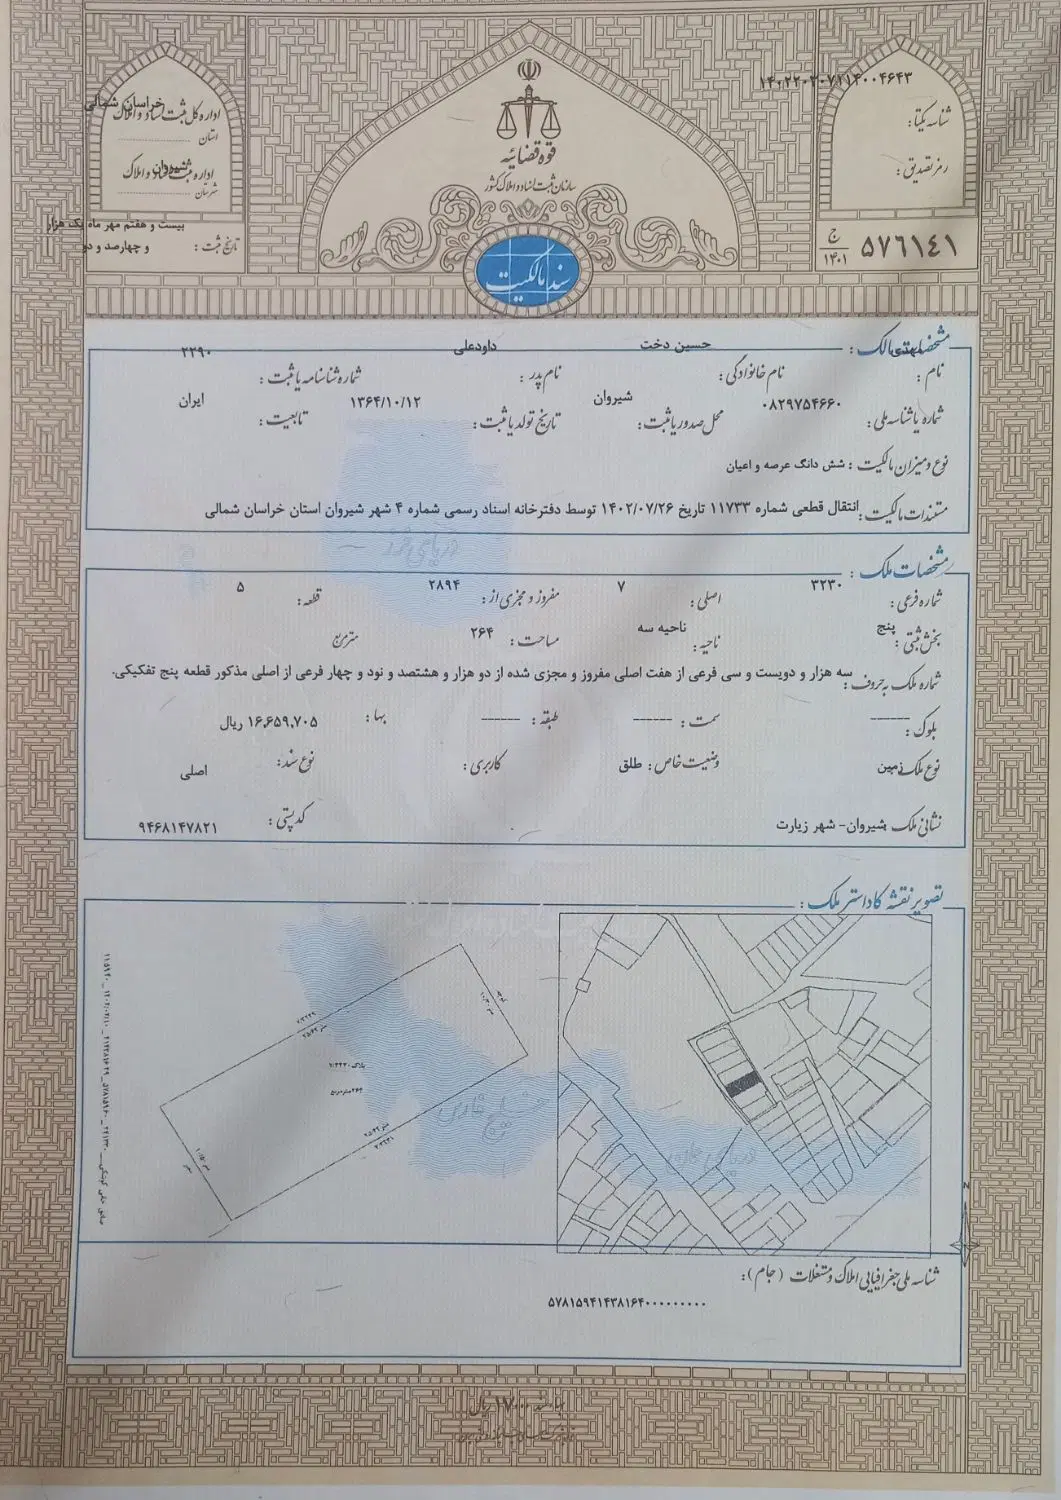 ۱۴۰۲۲۰۳۰۷۱۱۴۰۰۴۶۴۳
شناسه یکتا:
رمز تصدیق:
۵۷٦۱٤۱ ج ۱۴۰۱
قوه قضائیه
سازمان ثبت اسناد و املاک کشور
سند مالکیت
اداره کل ثبت اسناد و املاک
استان خراسان شمالی
اداره ثبت اسناد و املاک
شهرستان شیروان
تاریخ ثبت: بیست و هفتم مهر ماه یک هزار
و چهارصد و دو
مشخصات مالک:
نام: مهدی نام خانوادگی: حسین دخت نام پدر: داودعلی شماره شناسنامه یا ثبت: ۲۲۹۰
شماره یا شناسه ملی: ۰۸۲۹۷۵۴۶۶۰ محل صدور یا ثبت: شیروان تاریخ تولد یا ثبت: ۱۳۶۴/۱۰/۱۲ تابعیت: ایران
نوع و میزان مالکیت: شش دانگ عرصه و اعیان
مستندات مالکیت: انتقال قطعی شماره ۱۱۷۳۳ تاریخ ۱۴۰۲/۰۷/۲۶ توسط دفترخانه اسناد رسمی شماره ۴ شهر شیروان استان خراسان شمالی
دریای خزر
مشخصات ملک:
شماره فرعی: ۳۲۳۰ اصلی: ۷ مفروز و مجزی از: ۲۸۹۴ قطعه: ۵
بخش ثبتی: پنج ناحیه: ناحیه سه مساحت: ۲۶۴ مترمربع
شماره ملک به حروف: سه هزار و دویست و سی فرعی از هفت اصلی مفروز و مجزی شده از دو هزار و هشتصد و نود و چهار فرعی از اصلی مذکور قطعه پنج تفکیکی.
بلوک: ------ سمت: ------ طبقه: ------ بها: ۱۶,۶۵۹,۷۰۵ ریال
نوع ملک: زمین وضعیت خاص: طلق کاربری: نوع سند: اصلی
نشانی ملک: شیروان- شهر زیارت کد پستی: ۹۴۶۸۱۴۷۸۲۱
تصویر نقشه کاداستر ملک:
۷:۳۲۲۹
پلاک ۷:۳۲۳۰
۲۶۴ مترمربع
۷:۳۲۳۱
کوچه
خلیج فارس
دریای عمان
N
شناسه ملی جغرافیایی املاک و مستغلات (جام):
۵۷۸۱۵۹۴۱۴۳۸۱۶۴۰۰۰۰۰۰۰۰۰